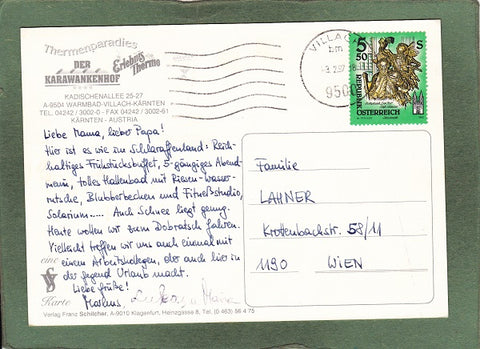 Thermenparadies
DER
KARAWANKENHOF
Erlebnis
Therme
KADISCHENALLEE 25-27
A-9504 WARMBAD-VILLACH-KÄRNTEN
TEL. 04242 / 3002-0 - FAX 04242 / 3002-61
KÄRNTEN - AUSTRIA
VILLACH
9500
5 50
S
REPUBLIK
ÖSTERREICH
Liebe Mama, lieber Papa!
Hier ist es wie im Schlaraffenland: Reich-
haltiges Frühstücksbuffet, 5-gängiges Abend-
menü, tolles Hallenbad mit Riesen-Wasser-
rutsche, Blubberbecken und Fitneßstudio,
Solarium.... Auch Schnee liegt genug.
Heute wollen wir zum Dobratsch fahren.
Vielleicht treffen wir uns auch einmal mit
einem Arbeitskollegen, der auch hier in
der Gegend Urlaub macht.
Liebe Grüße!
Markus,
eine
Karte
Familie
LAHNER
Krottenbachstr. 58/11
1190 WIEN
Verlag Franz Schilcher, A-9010 Klagenfurt, Heinzgasse 8, Tel. (0 463) 56 4 75